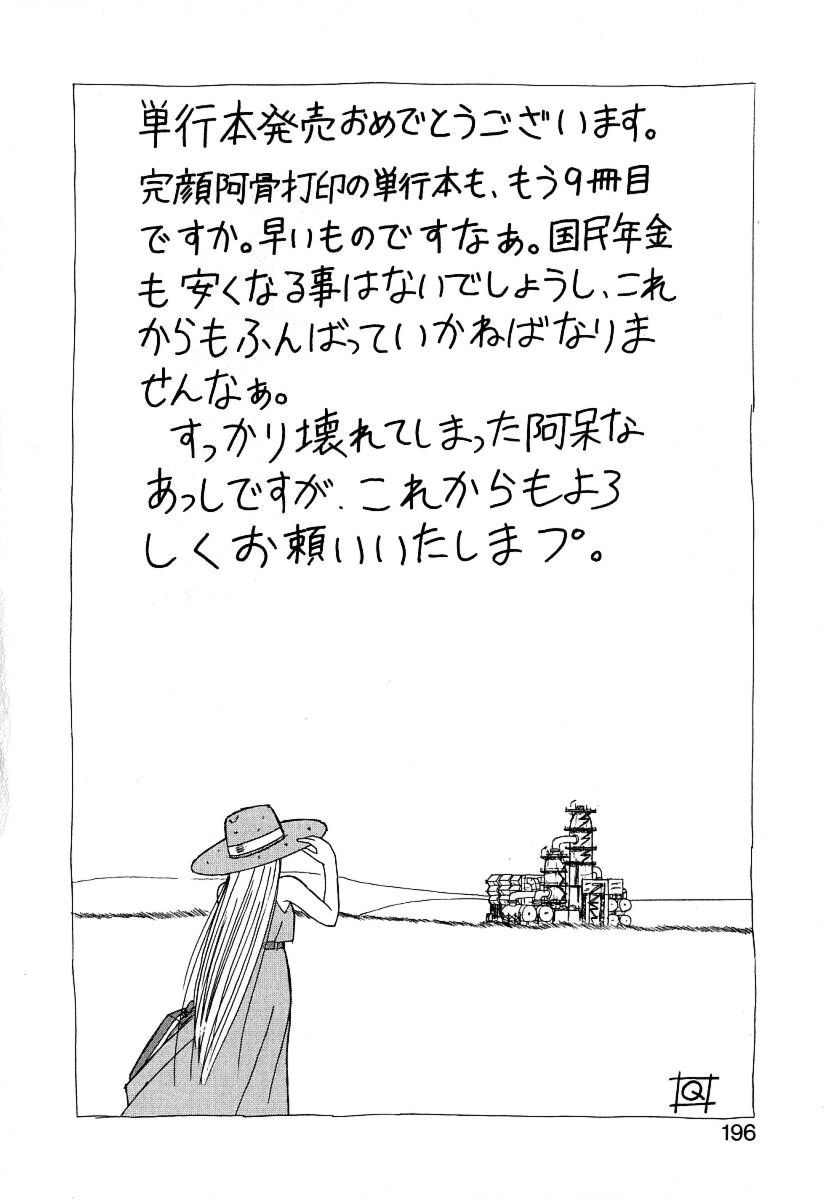 単行本発売おめでとうございます。
完顔阿骨打印の単行本も、もう9冊目
ですか。早いものですなぁ。国民年金
も安くなる事はないでしょうし、これ
からもふんばっていかねばなりま
せんなぁ。
すっかり壊れてしまった阿呆な
あっしですが、これからもよろ
しくお頼いいたしまプ。
Q
196